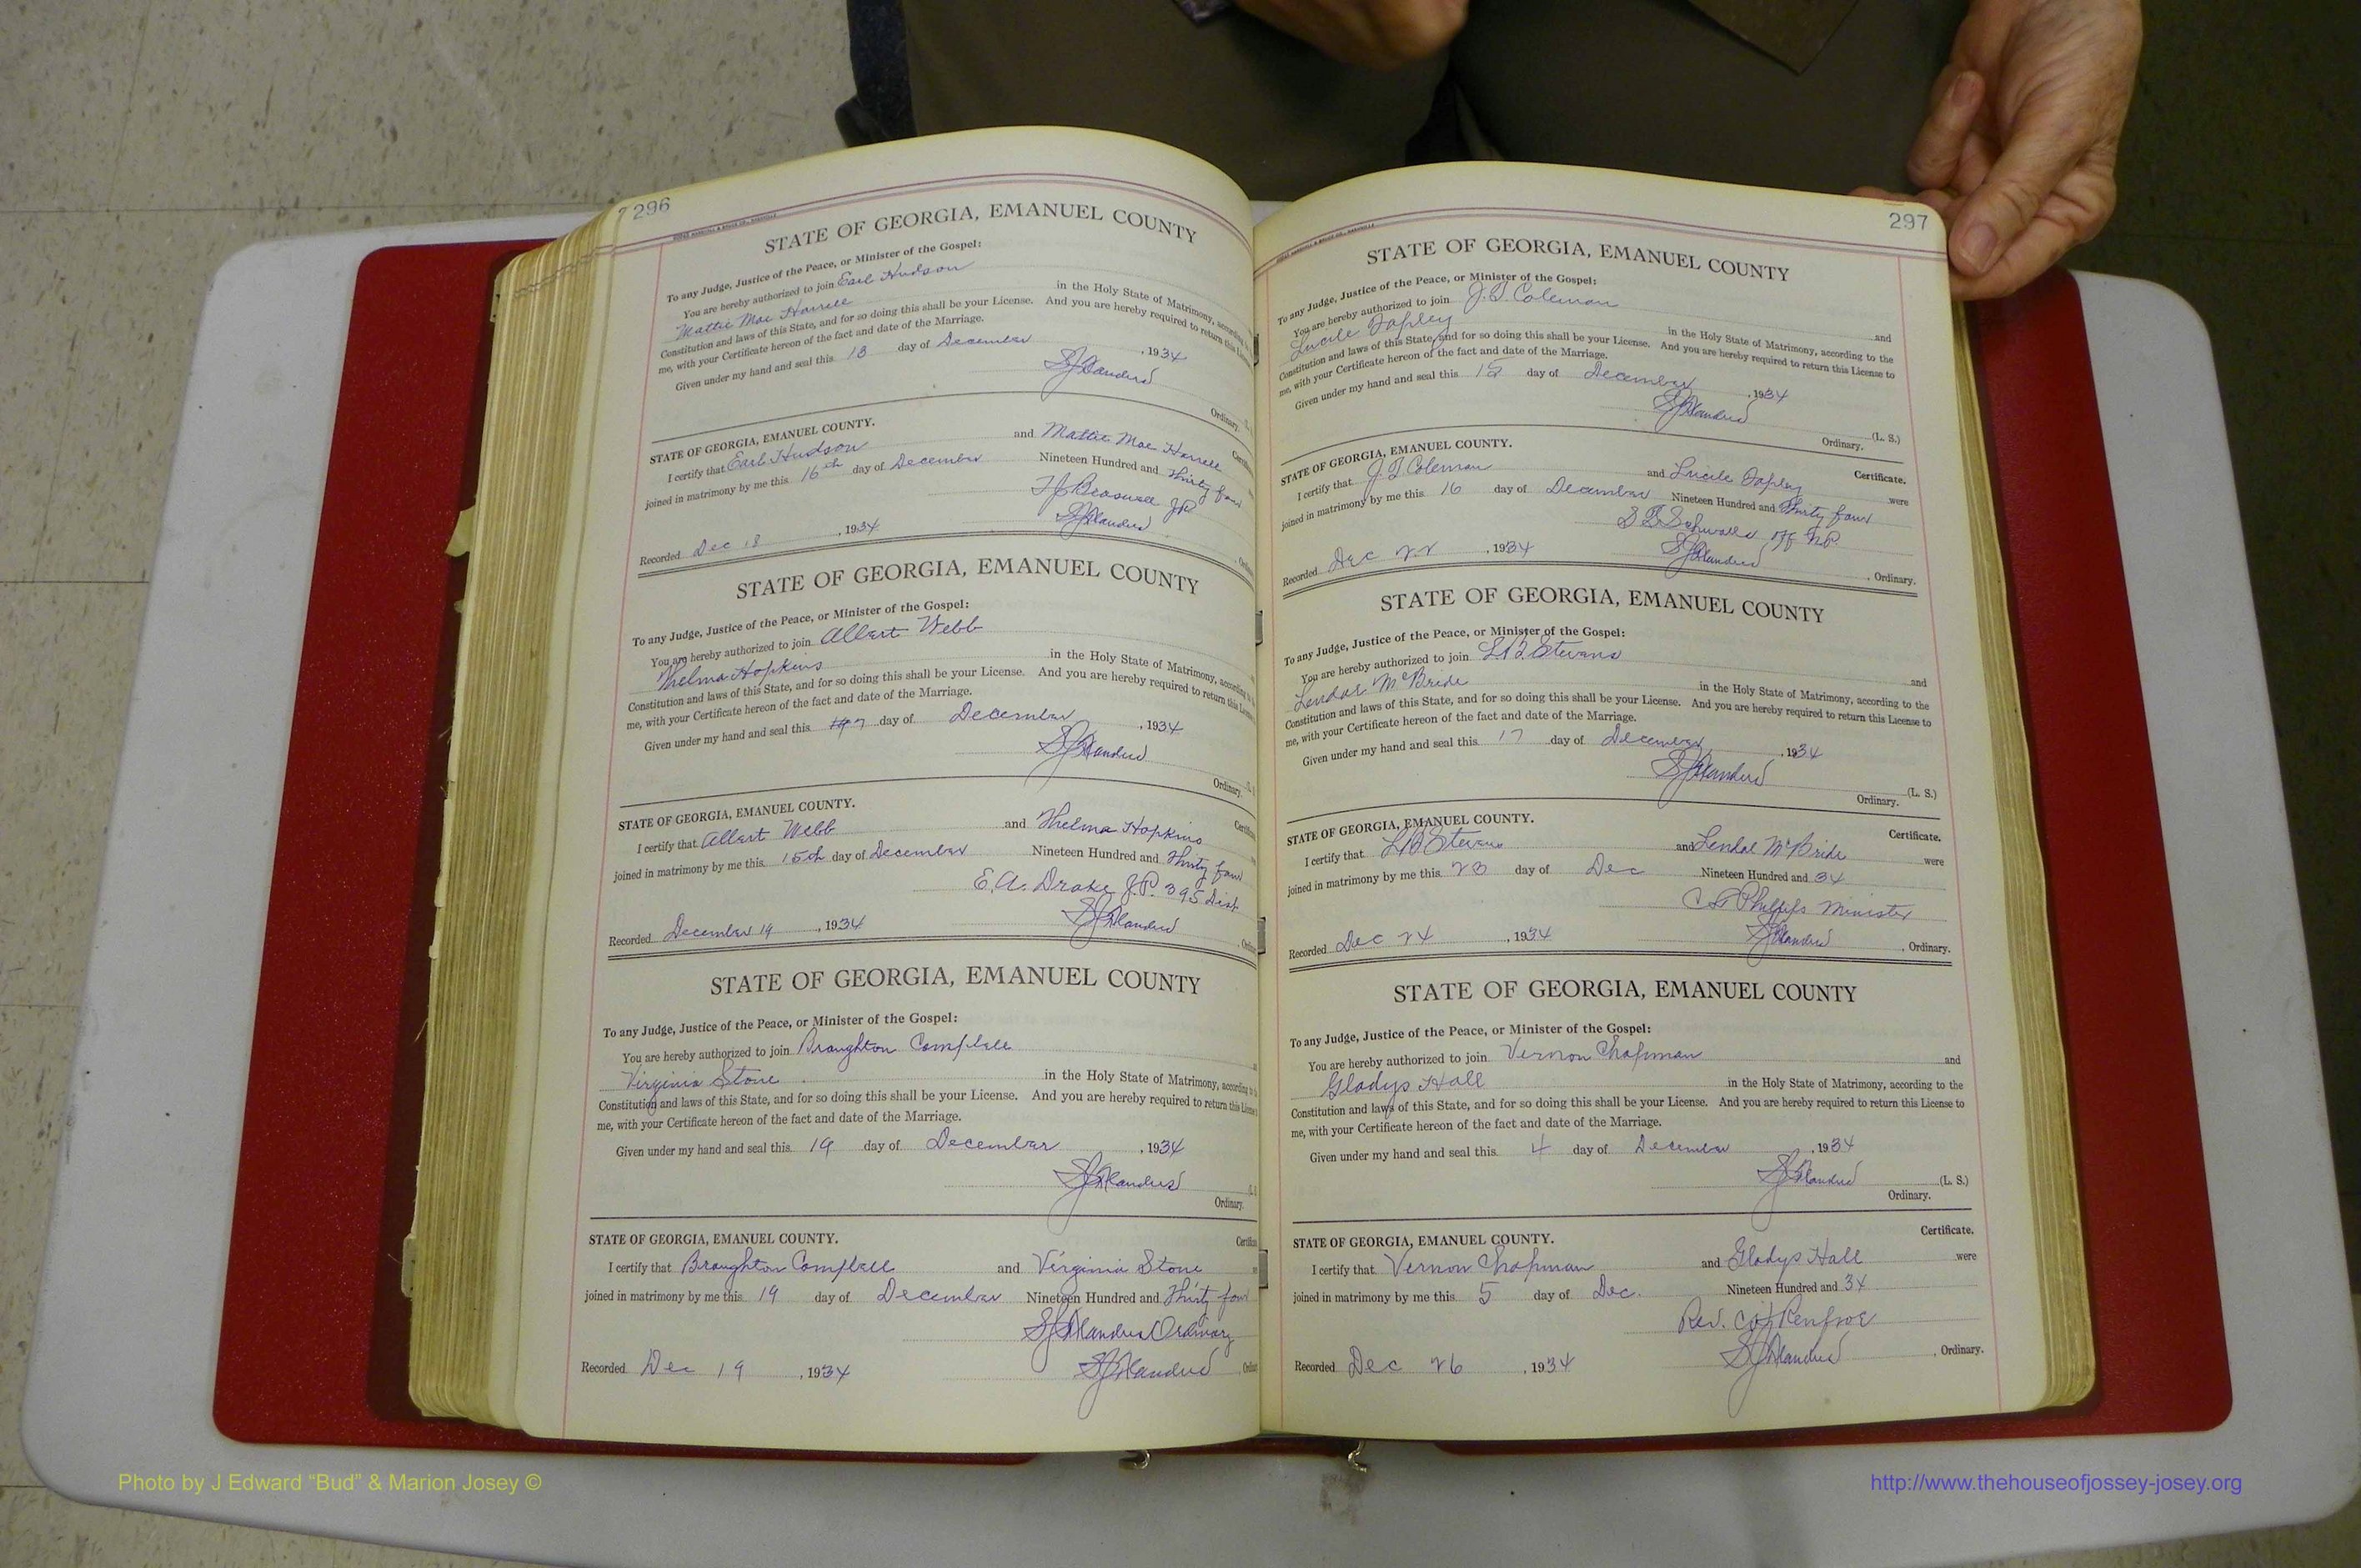 296
STATE OF GEORGIA, EMANUEL COUNTY
To any Judge, Justice of the Peace, or Minister of the Gospel:
You are hereby authorized to join Earl Hudson
Mattie Mae Harrell in the Holy State of Matrimony, according
Constitution and laws of this State, and for so doing this shall be your License. And you are hereby required to return this
me, with your Certificate hereon of the fact and date of the Marriage.
Given under my hand and seal this 13 day of December, 1934
Ordinary.
STATE OF GEORGIA, EMANUEL COUNTY.
I certify that Earl Hudson and Mattie Mae Harrell
joined in matrimony by me this 16th day of December Nineteen Hundred and Thirty four
J.P.
Recorded Dec 18, 1934
STATE OF GEORGIA, EMANUEL COUNTY
To any Judge, Justice of the Peace, or Minister of the Gospel:
You are hereby authorized to join Albert Webb
Thelma Hopkins in the Holy State of Matrimony, according
Constitution and laws of this State, and for so doing this shall be your License. And you are hereby required to return this
me, with your Certificate hereon of the fact and date of the Marriage.
Given under my hand and seal this day of December, 1934
Ordinary.
STATE OF GEORGIA, EMANUEL COUNTY.
I certify that Albert Webb and Thelma Hopkins
joined in matrimony by me this 15th day of December Nineteen Hundred and Thirty four
E.A. Drake J.P. 395 Dist
Recorded December 19, 1934
STATE OF GEORGIA, EMANUEL COUNTY
To any Judge, Justice of the Peace, or Minister of the Gospel:
You are hereby authorized to join Broughton Campbell
Virginia Stone in the Holy State of Matrimony, according
Constitution and laws of this State, and for so doing this shall be your License. And you are hereby required to return this
me, with your Certificate hereon of the fact and date of the Marriage.
Given under my hand and seal this 19 day of December, 1934
Ordinary.
STATE OF GEORGIA, EMANUEL COUNTY.
I certify that Broughton Campbell and Virginia Stone
joined in matrimony by me this 19 day of December Nineteen Hundred and Thirty four
Ordinary
Recorded Dec 19, 1934
297
STATE OF GEORGIA, EMANUEL COUNTY
To any Judge, Justice of the Peace, or Minister of the Gospel:
You are hereby authorized to join J.T. Coleman and
Lucile Tapley in the Holy State of Matrimony, according to the
Constitution and laws of this State, and for so doing this shall be your License. And you are hereby required to return this License to
me, with your Certificate hereon of the fact and date of the Marriage.
Given under my hand and seal this 15 day of December, 1934
(L. S.)
Ordinary.
STATE OF GEORGIA, EMANUEL COUNTY. Certificate.
I certify that J.T. Coleman and Lucile Tapley were
joined in matrimony by me this 16 day of December Nineteen Hundred and Thirty four
Recorded Dec 22, 1934 , Ordinary.
STATE OF GEORGIA, EMANUEL COUNTY
To any Judge, Justice of the Peace, or Minister of the Gospel:
You are hereby authorized to join L.B. Stevens and
Lendal McBride in the Holy State of Matrimony, according to the
Constitution and laws of this State, and for so doing this shall be your License. And you are hereby required to return this License to
me, with your Certificate hereon of the fact and date of the Marriage.
Given under my hand and seal this 17 day of December, 1934
(L. S.)
Ordinary.
STATE OF GEORGIA, EMANUEL COUNTY. Certificate.
I certify that L.B. Stevens and Lendal McBride were
joined in matrimony by me this 23 day of Dec Nineteen Hundred and 34
Phillips Minister
Recorded Dec 24, 1934 , Ordinary.
STATE OF GEORGIA, EMANUEL COUNTY
To any Judge, Justice of the Peace, or Minister of the Gospel:
You are hereby authorized to join Vernon Chapman and
Gladys Hall in the Holy State of Matrimony, according to the
Constitution and laws of this State, and for so doing this shall be your License. And you are hereby required to return this License to
me, with your Certificate hereon of the fact and date of the Marriage.
Given under my hand and seal this 4 day of December, 1934
(L. S.)
Ordinary.
STATE OF GEORGIA, EMANUEL COUNTY. Certificate.
I certify that Vernon Chapman and Gladys Hall were
joined in matrimony by me this 5 day of Dec. Nineteen Hundred and 34
Rev. Renfroe
Recorded Dec 26, 1934 , Ordinary.
Photo by J Edward “Bud” & Marion Josey ©
http://www.thehouseofjossey-josey.org